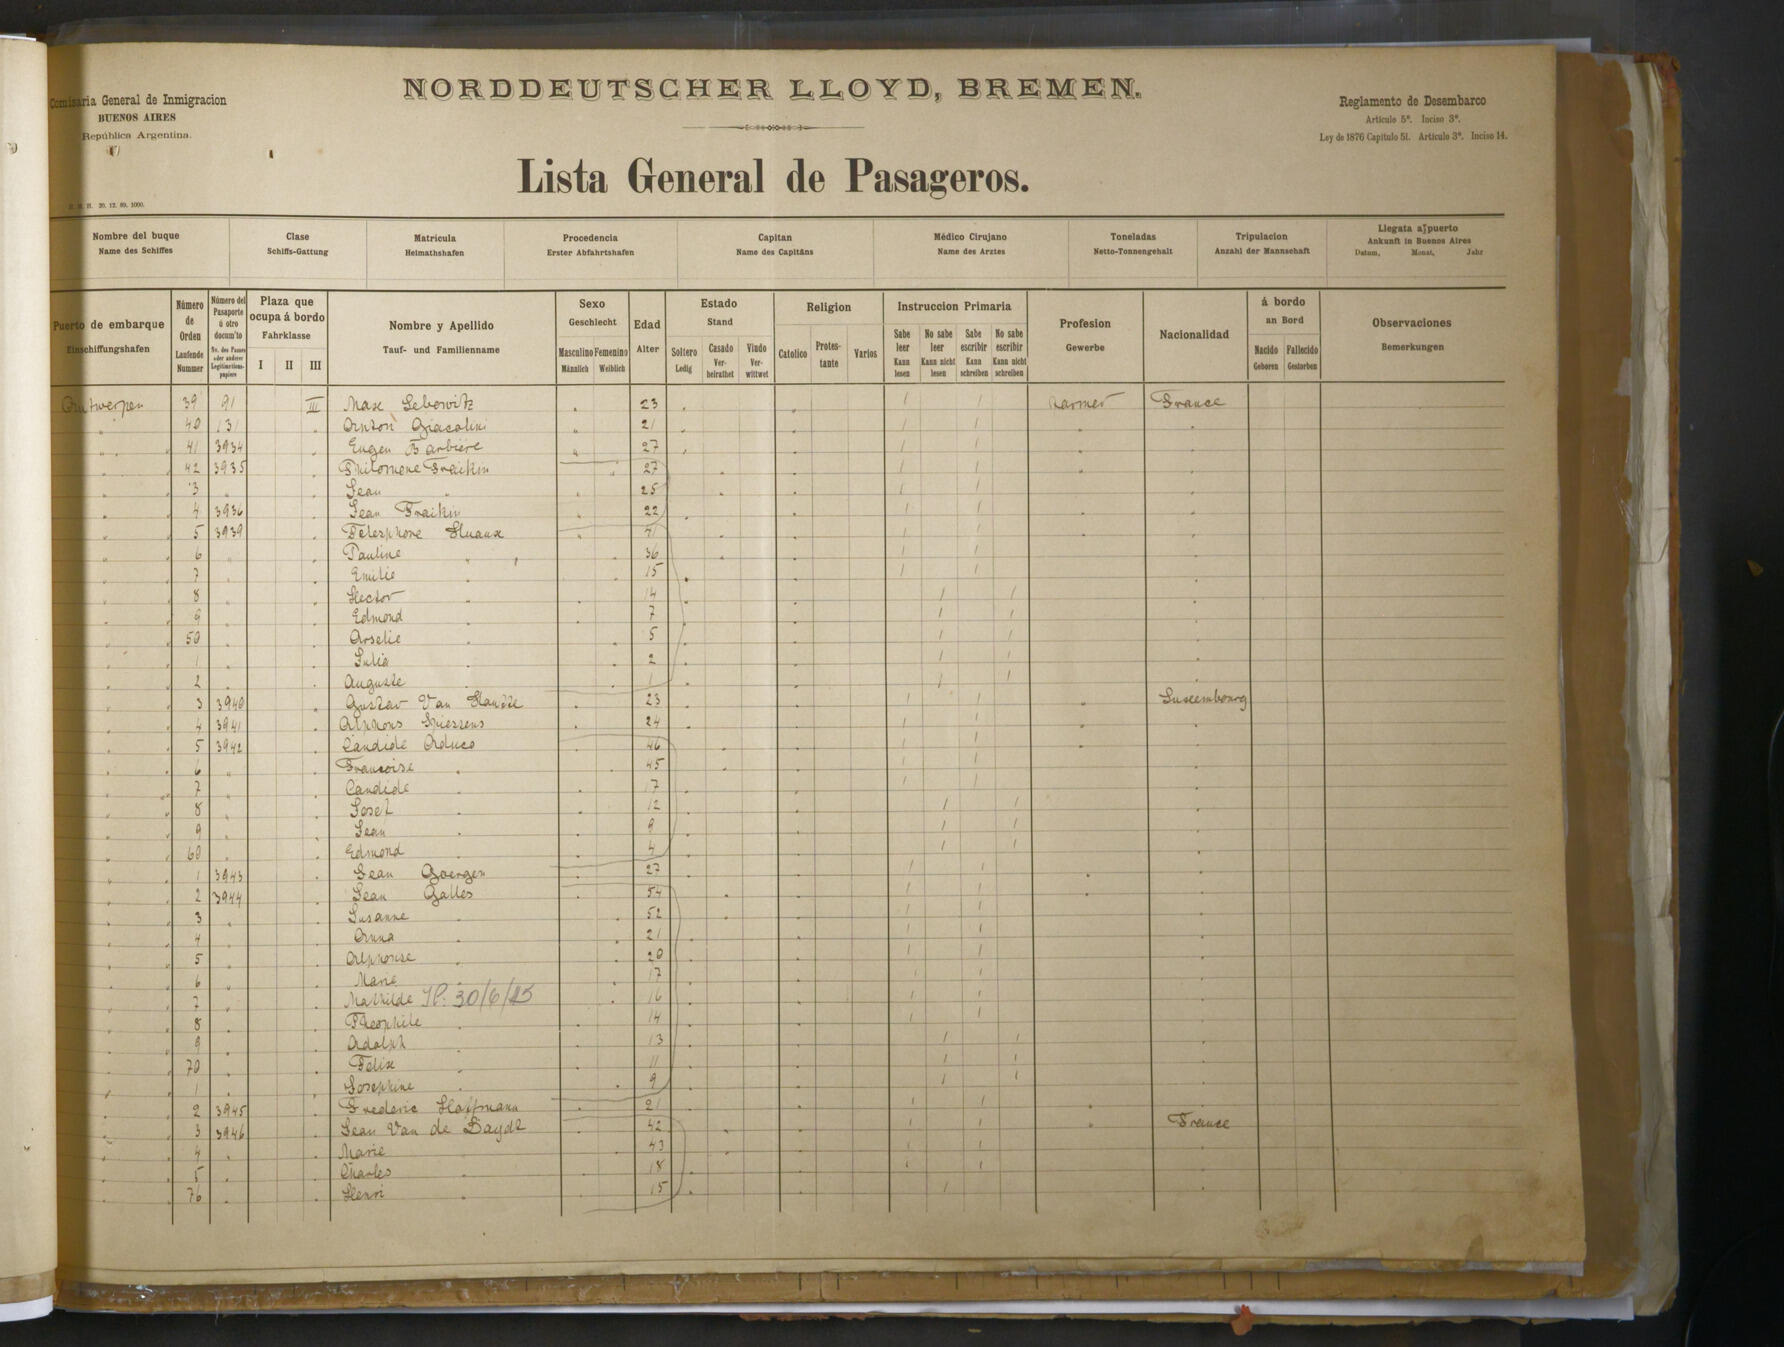 NORDDEUTSCHER LLOYD, BREMEN.
Comisaria General de Inmigracion
BUENOS AIRES
República Argentina.
Reglamento de Desembarco
Articulo 5º. Inciso 3º.
Ley de 1876 Capitulo 51. Articulo 3º. Inciso 14.
Lista General de Pasageros.
20. 12. 89. 1000.
Nombre del buque Clase Matricula Procedencia Capitan Médico Cirujano Toneladas Tripulacion Llegata a puerto
Name des Schiffes Schiffs-Gattung Heimathshafen Erster Abfahrtshafen Name des Capitäns Name des Arztes Netto-Tonnengehalt Anzahl der Mannschaft Ankunft in Buenos Aires
Datum, Monat, Jahr
Puerto de embarque
Einschiffungshafen
Número de Orden
Laufende Nummer
Número del Pasaporte ú otro docum'to
No. des Passes oder anderer Legitimations-papiere
Plaza que ocupa á bordo
Fahrklasse
I II III
Nombre y Apellido
Tauf- und Familienname
Sexo
Geschlecht
Masculino Femenino
Männlich Weiblich
Edad
Alter
Estado
Stand
Soltero Casado Viudo
Ledig Ver-heirathet Ver-wittwet
Religion
Catolico Protes-tante Varios
Instruccion Primaria
Sabe leer No sabe leer Sabe escribir No sabe escribir
Kann lesen Kann nicht lesen Kann schreiben Kann nicht schreiben
Profesion
Gewerbe
Nacionalidad
á bordo
an Bord
Nacido Fallecido
Geboren Gestorben
Observaciones
Bemerkungen
Antwerpen 39 91 III Max Lebowitz 23 Farmer France
40 131 Anton Giacolini 21
41 3934 Eugen Barbiere 27
42 3935 Philomene Fraikin 27
3 Jean 25
4 3936 Jean Fraikin 22
5 3939 Telesphore 41
6 Pauline 36
7 Emilie 15
8 Hector 14
9 Edmond 7
50 Arselie 5
1 Julia 2
2 Auguste 1
3 3940 Gustav Van 23 Luxembourg
4 3941 Alphons 24
5 3942 Candide 46
6 Francoise 45
7 Candide 17
8 Josef 12
9 Jean 9
60 Edmond 4
1 3943 Jean Goergen 27
2 3944 Jean Galles 54
3 Susanne 52
4 Anna 21
5 Alphonse 20
6 Marie 17
7 Mathilde 30/6/25 16
8 Theophile 14
9 Adolph 13
70 Felix 11
1 Josephine 9
2 3945 Frederic Hoffmann 21
3 3946 Jean Van de Bayde 42 France
4 Marie 43
5 Charles 18
76 Henri 15